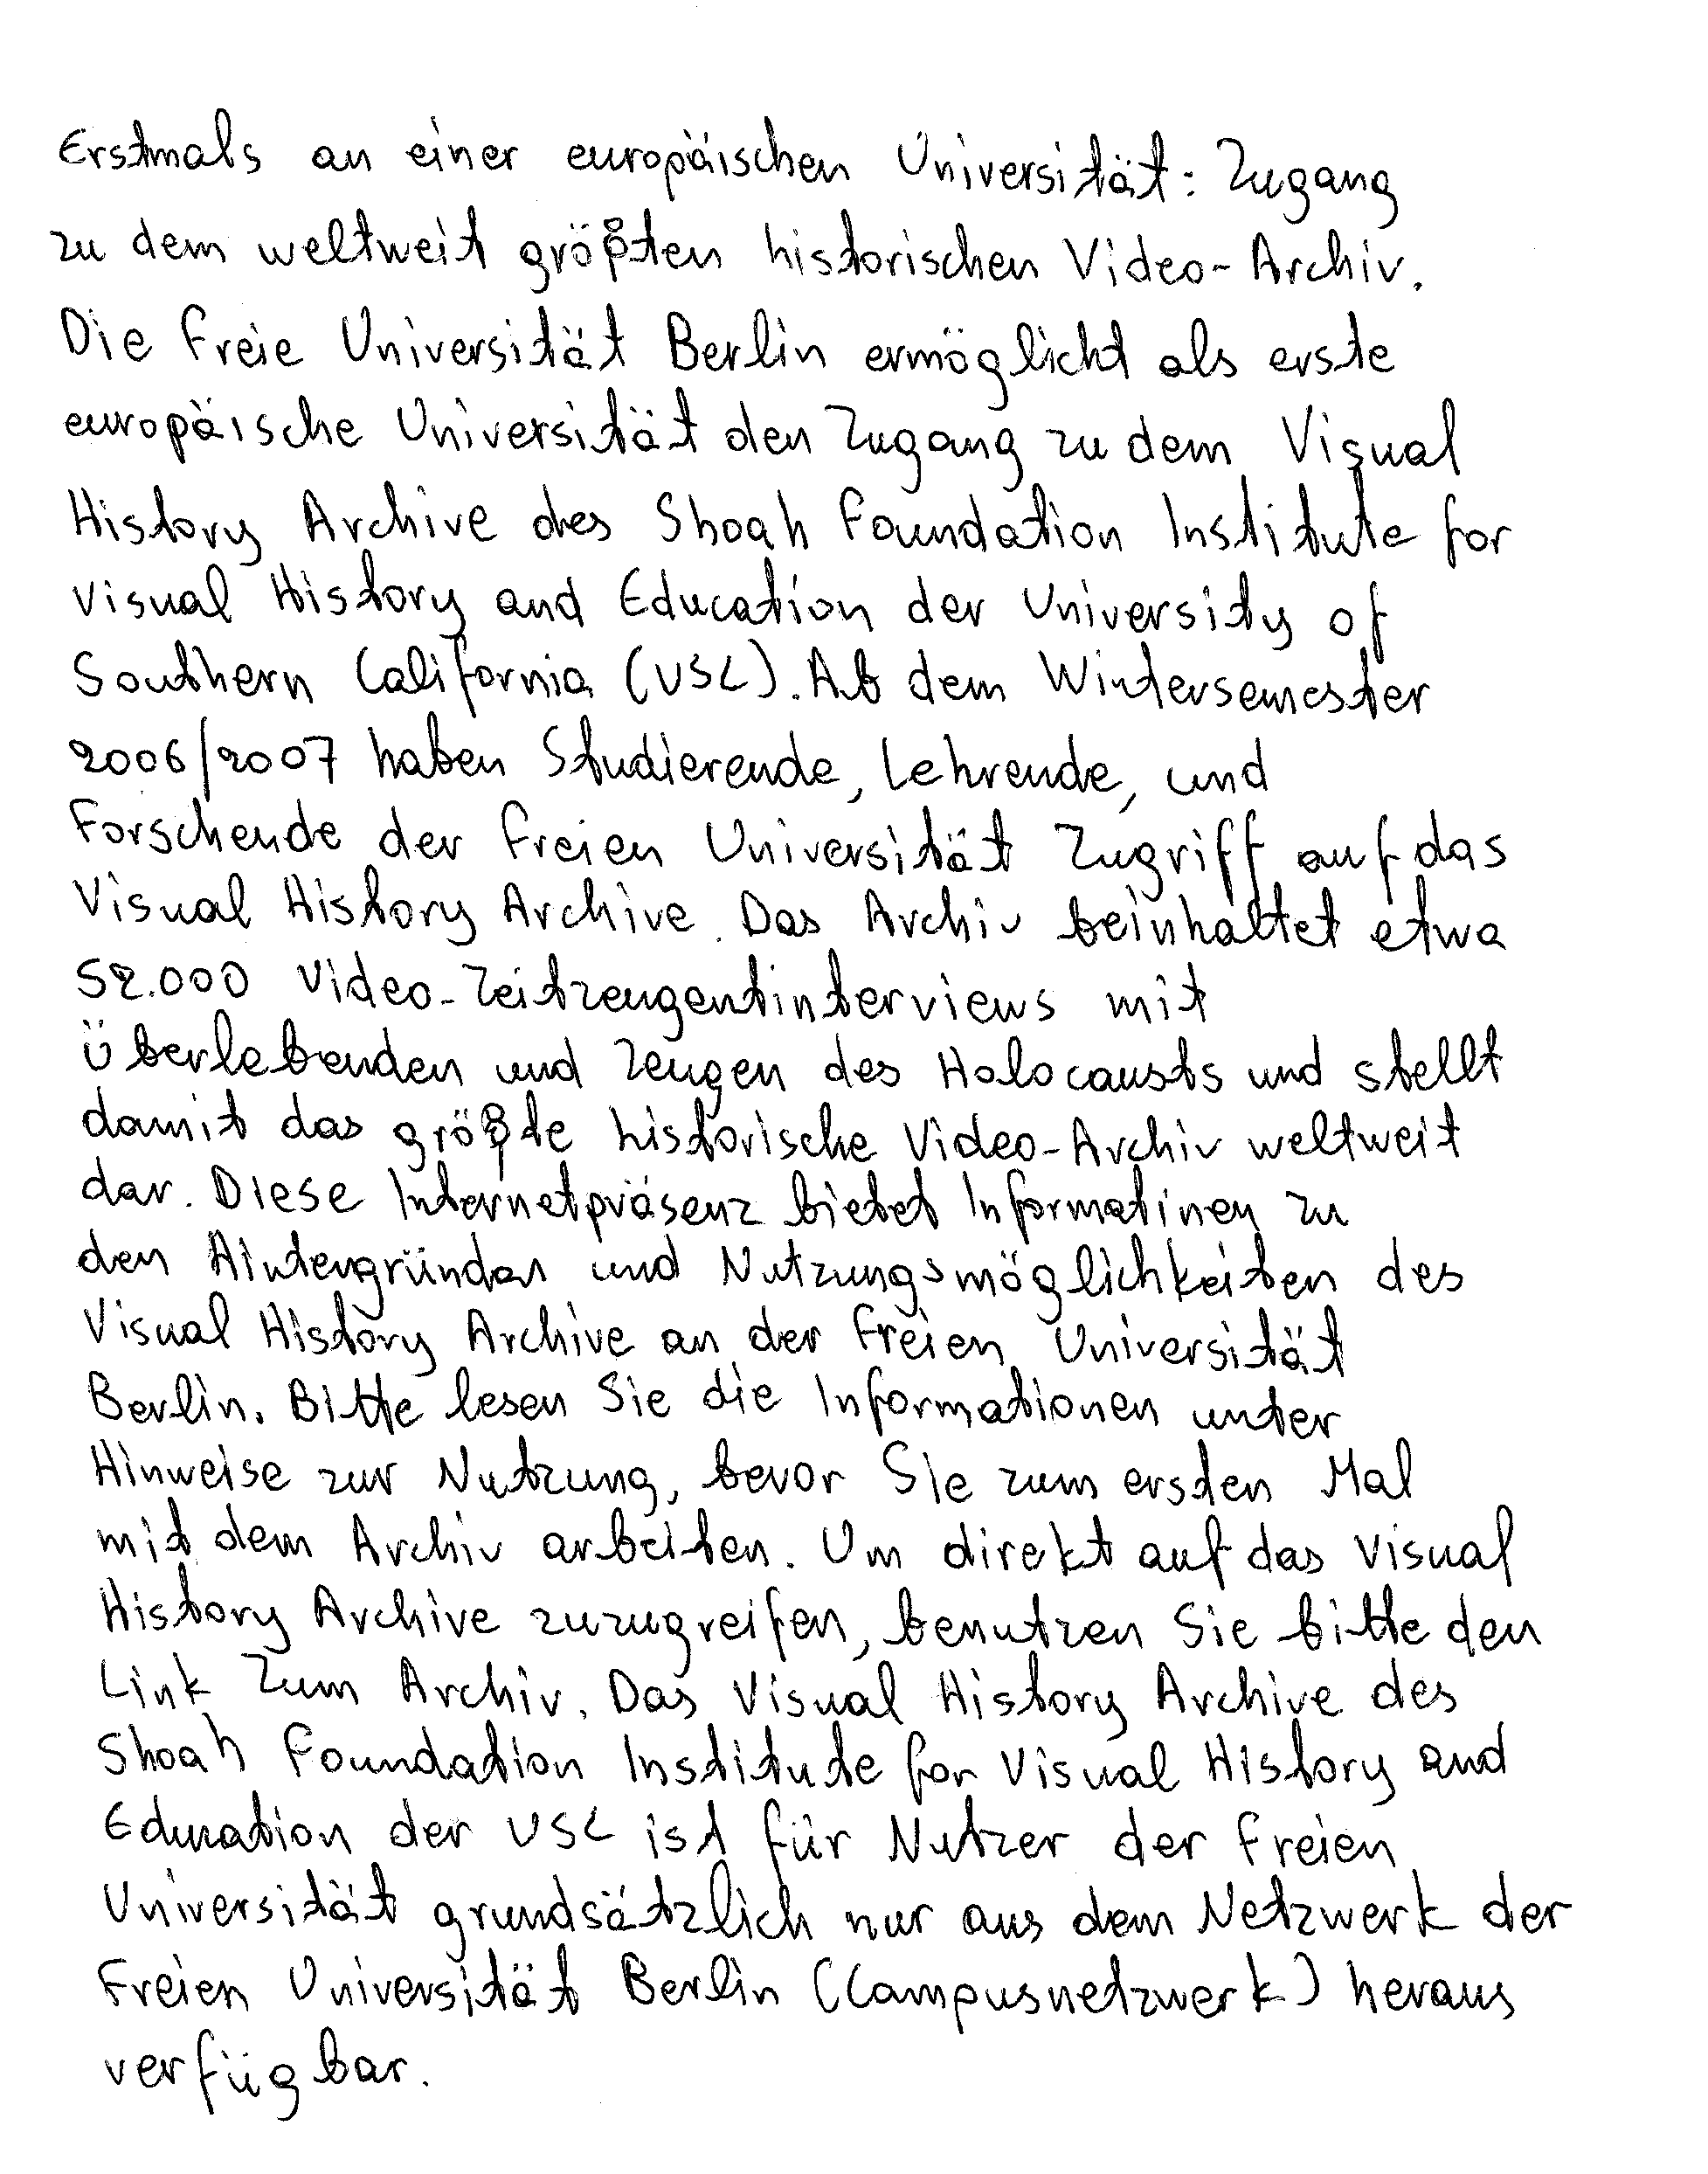 Erstmals an einer europäischen Universität: Zugang
zu dem weltweit größten historischen Video-Archiv.
Die Freie Universität Berlin ermöglicht als erste
europäische Universität den Zugang zu dem Visual
History Archive des Shoah Foundation Institute for
Visual History and Education der University of
Southern California (USC). Ab dem Wintersemester
2006/2007 haben Studierende, Lehrende, und
Forschende der Freien Universität Zugriff auf das
Visual History Archive. Das Archiv beinhaltet etwa
52.000 Video-Zeitzeugentinterviews mit
Überlebenden und Zeugen des Holocausts und stellt
damit das größte historische Video-Archiv weltweit
dar. Diese Internetpräsenz bietet Informatinen zu
den Hintengründen und Nutzungsmöglichkeiten des
Visual History Archive an der Freien Universität
Berlin. Bitte lesen Sie die Informationen unter
Hinweise zur Nutzung, bevor Sie zum ersten Mal
mit dem Archiv arbeiten. Um direkt auf das Visual
History Archive zuzugreifen, benutzen Sie bitte den
Link Zum Archiv. Das Visual History Archive des
Shoah Foundation Institute for Visual History and
Education der USC ist für Nutzer der Freien
Universität grundsätzlich nur aus dem Netzwerk der
Freien Universität Berlin (Campusnetzwerk) heraus
verfügbar.